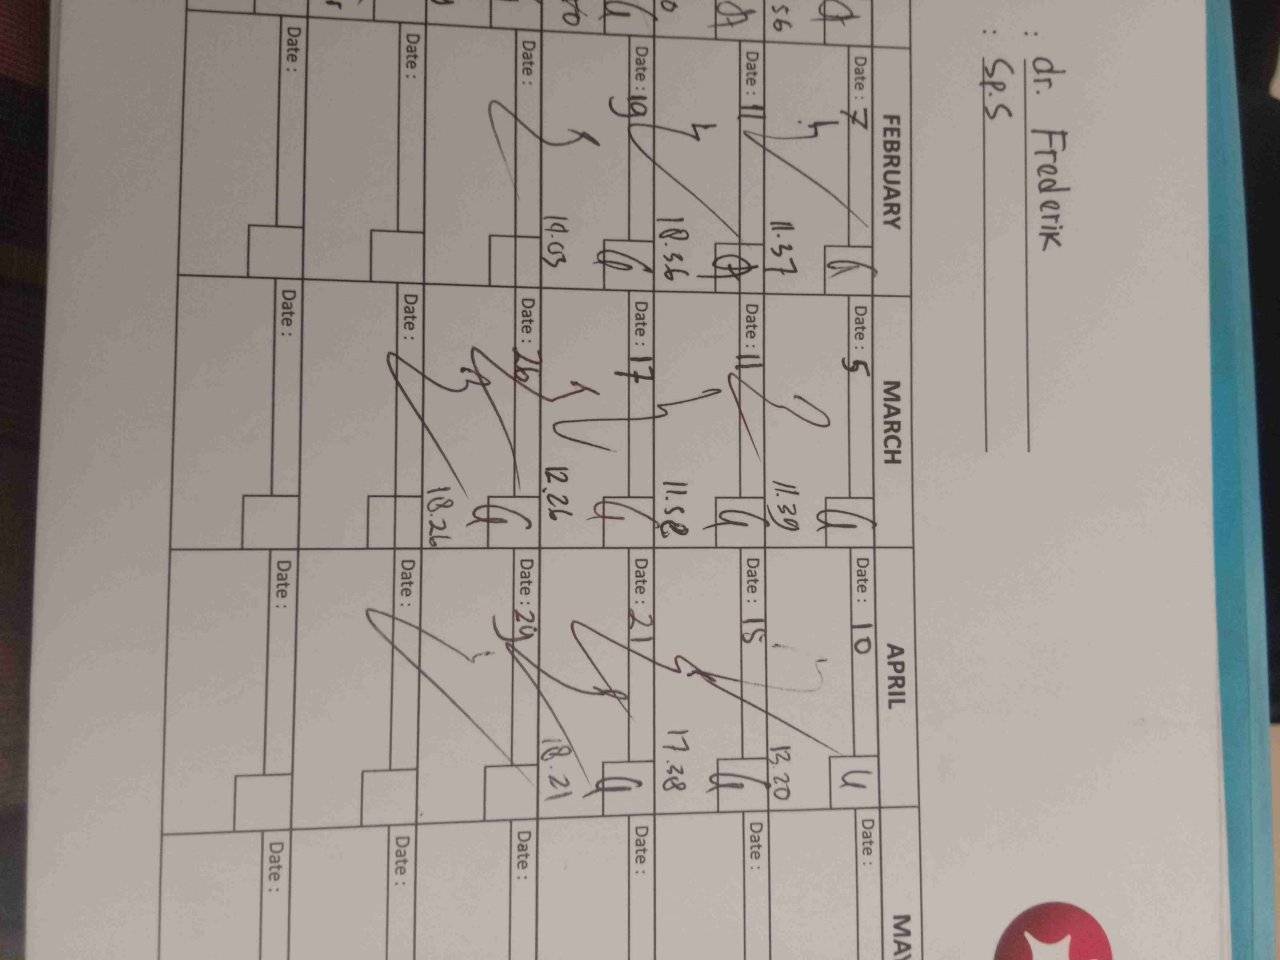 : dr. Frederik
: Sp.S
FEBRUARY MARCH APRIL MAY
Date : 7 Date : 5 Date : 10 Date :
11.37 11.39 13.20
Date : 11 Date : 11 Date : 15 Date :
18.36 11.58 17.38
Date : 19 Date : 17 Date : 21 Date :
19.03 12.26 18.21
Date : Date : 26 Date : 29 Date :
18.26
Date : Date : Date : Date :
Date : Date : Date : Date :